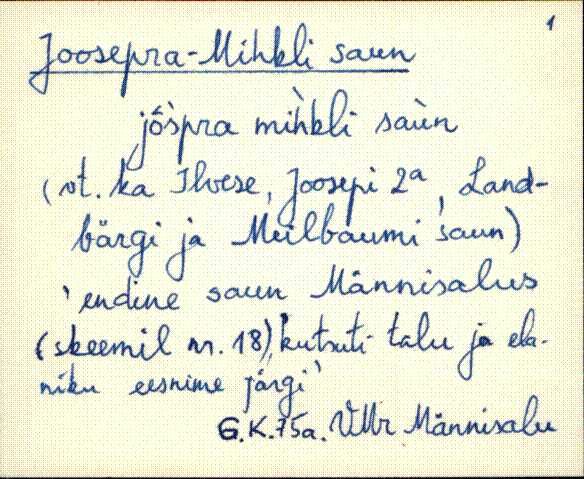 1
Joosepra-Mihkli saun
jô̭spra mìhkli saùn
(vt. ka Ilvese, Joosepi 2a, Land-
bärgi ja Meilbaumi saun)
'endine saun Männisalus
(skeemil nr. 18), kutsuti talu ja ela-
niku eesnime järgi'
G.K. 75a. VMr Männisalu